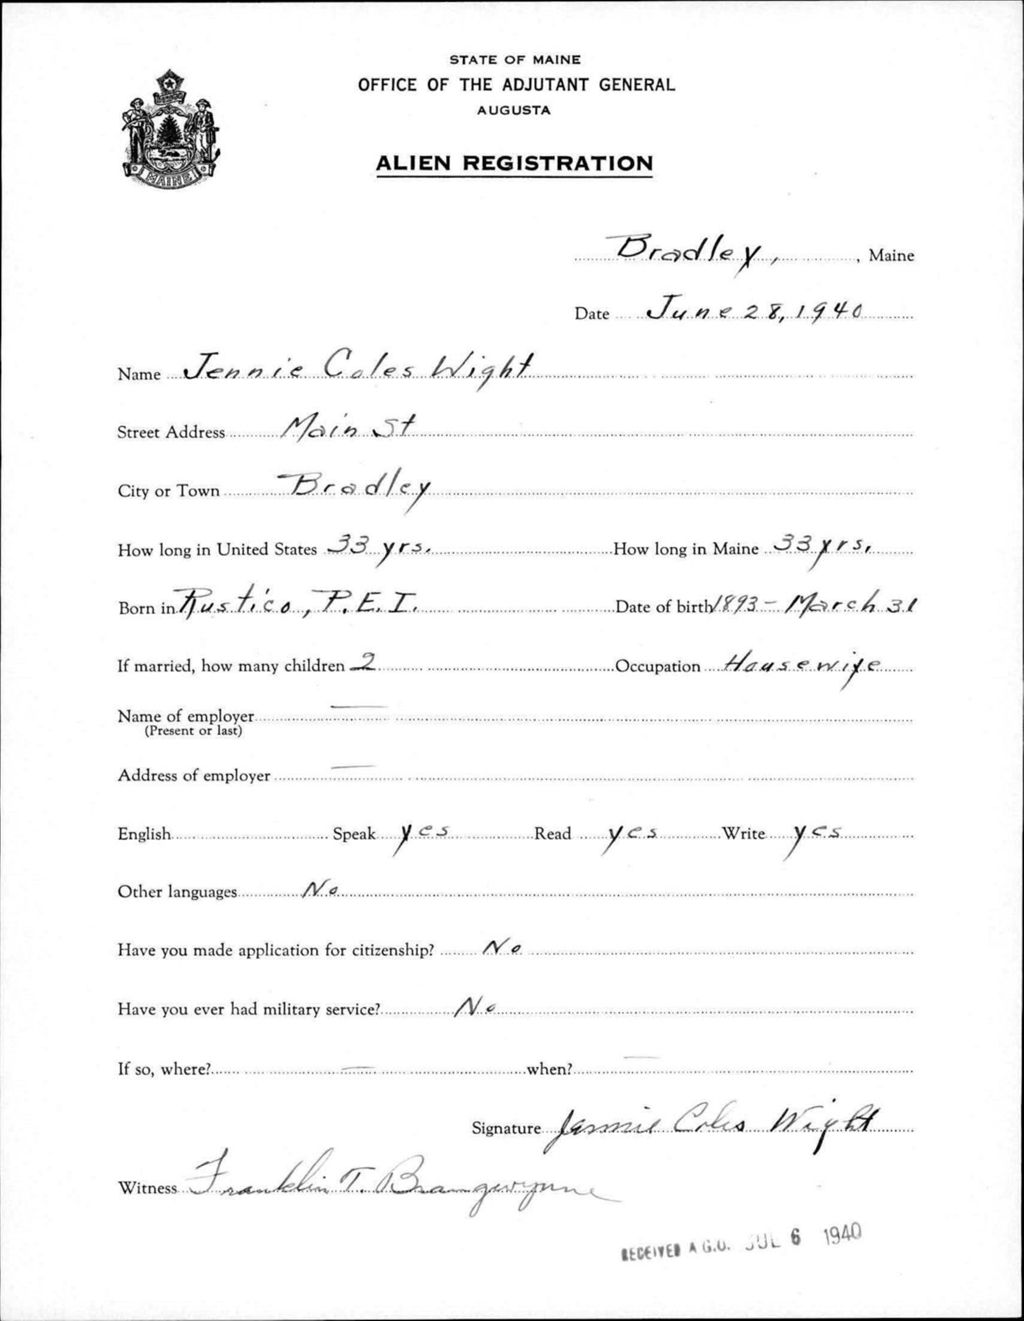 STATE OF MAINE
OFFICE OF THE ADJUTANT GENERAL
AUGUSTA
ALIEN REGISTRATION
MAINE
Bradley, , Maine
Date June 28, 1940
Name Jennie Coles Wight
Street Address Main St
City or Town Bradley
How long in United States 33 yrs. How long in Maine 33 yrs.
Born in Rustico, P.E.I. Date of birth 1893 - March 31
If married, how many children 2 Occupation Housewife
Name of employer —
(Present or last)
Address of employer —
English Speak yes Read yes Write yes
Other languages No
Have you made application for citizenship? No
Have you ever had military service? No
If so, where? — when? —
Signature Jennie Coles Wight
Witness Franklin T. Bramgwynne
RECEIVED A.G.O. JUL 6 1940